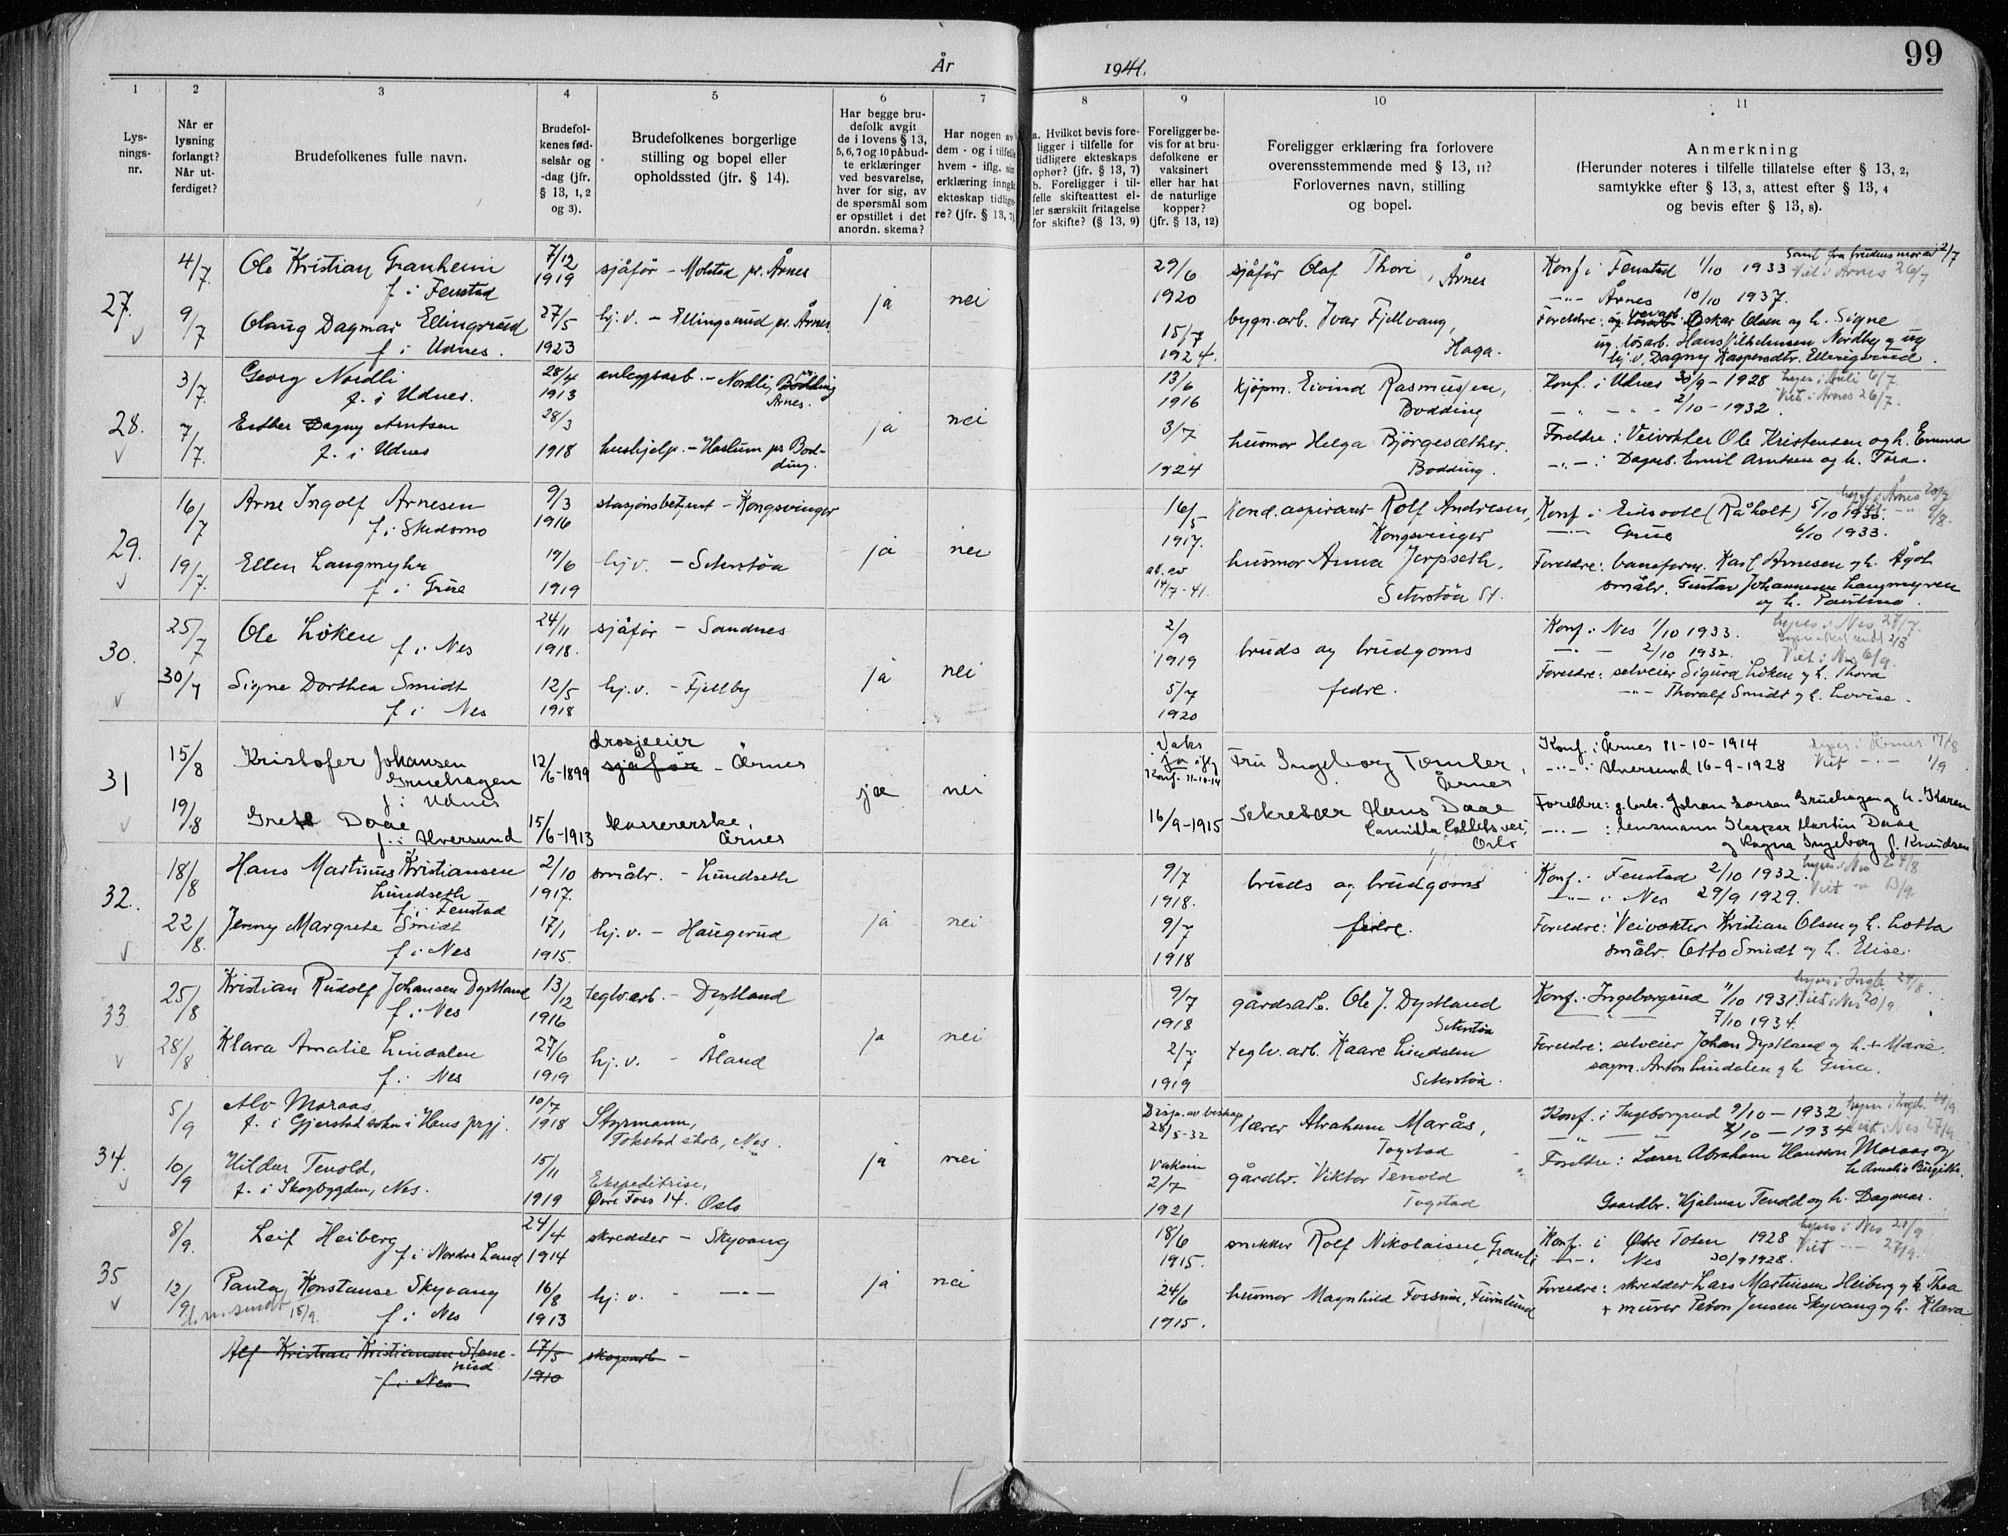 99
År 1941.
1 2 3 4 5 6 7 8 9 10 11
Lysnings-nr.
Når er lysning forlangt? Når utferdiget?
Brudefolkenes fulle navn.
Brudefolkenes fødselsår og -dag (jfr. § 13, 1, 2 og 3).
Brudefolkenes borgerlige stilling og bopel eller opholdssted (jfr. § 14).
Har begge brudefolk avgit de i lovens § 13, 5, 6, 7 og 10 påbudte erklæringer ved besvarelse, hver for sig, av de spørsmål som er opstillet i det anordn. skema?
Har nogen av dem - og i tilfelle hvem - iflg. sin erklæring inngått ekteskap tidligere? (jfr. § 13, 7).
a. Hvilket bevis foreligger i tilfelle for tidligere ekteskaps ophør? (jfr. § 13, 7) b. Foreligger i tilfelle skifteattest eller særskilt fritagelse for skifte? (§ 13, 9)
Foreligger bevis for at brudefolkene er vaksinert eller har hat de naturlige kopper? (jfr. § 13, 12)
Foreligger erklæring fra forlovere overensstemmende med § 13, 11? Forlovernes navn, stilling og bopel.
Anmerkning (Herunder noteres i tilfelle tillatelse efter § 13, 2, samtykke efter § 13, 3, attest efter § 13, 4 og bevis efter § 13, 8).
27. 4/7 Ole Kristian Granheim f. i Fenstad 7/12 1919 sjåfør - Molstad pr. Årnes ja nei 29/6 1920 sjåfør Olaf Thori, Årnes Samt. fra brudens mor av 2/7
Konf i Fenstad 1/10 1933 Viet i Årnes 26/7
-"- Årnes 10/10 1937.
9/7 Olaug Dagmar Ellingsrud f. i Udnes. 27/5 1923 hj.v. - Ellingsrud pr. Årnes 15/7 1924. bygn.arb. Ivar Fjellvang, Haga.
Foreldre: Oskar Olsen og h. Signe
ug. løsarb. Hans Vilhelmsen Nordby og ug
hj.v. Dagny Kaspersdtr. Ellingsrud.
28. 3/7 Georg Nordli f. i Udnes. 28/4 1913 anleggsarb. - Nordli, Bødding Årnes. ja nei 13/6 1916 kjøpm. Eivind Rasmussen, Bodding
Konf. i Udnes 30/9 - 1928 lyses i Auli 6/7
- " - " - 2/10 - 1932. Viet i Årnes 26/7.
7/7. Esther Dagny Arntsen f. i Udnes 28/3 1918 hushjelp. - Haslum pr Bodding. 3/7 1924 husmor Helga Bjørgesæther. Bodding.
Foreldre: Veivokter Ole Kristensen og h. Emma
-"-: Dagarb. Emil Arntsen og h. Tora.
29. 16/7 Arne Ingolf Arnesen f. i Skedsmo 9/3 1916 stasjonsbetjent - Kongsvinger ja nei 16/5 1917. Kond.aspirant Rolf Andresen, Kongsvinger
lyses i Årnes 20/7
Konf. i Eidsvoll (Råholt) 5/10 1930. 9/8.
-"- Grue 6/10 1933.
19/7. Ellen Langmyhr f. i Grue 19/6 1919 hj.v. - Seterstøa at. av 14/7 - 41. husmor Anna Jerpseth, Seterstøa St.
Foreldre: baneform. Karl Arnesen og h. Ågot
småbr. Gustav Johannesen Langmyren
og h. Pauline.
30. 25/7 Ole Løken f. i Nes 24/11 1918. sjåfør - Sandnes ja nei 2/9 1919 bruds og brudgoms
Konf. i Nes 1/10 1933. lyses i Nes 27/7.
-"- - 2/10 1932. Viet i Nes 6/9.
30/7 Signe Dorthea Smidt f. i Nes 12/5 1918 hj.v. - Fjellby 5/7 1920 fedre.
Foreldre: selveier Sigurd Løken og h. Thora
-"- Thoralf Smidt og h. Lovise.
31 15/8 Kristofer Johansen Gruehagen f. i Udnes 12/6-1899 drosjeeier sjåfør - Årnes ja nei Vaks ja iflg Konf. 11-10-14 Fru Ingeborg Tomter, Årnes
Konf. i Årnes 11-10-1914 lyses i Årnes 17/8
-"- i Alversund 16-9-1928 Viet -"- 1/9
19/8 Grete Daae f. i Alversund 15/6-1913 kassererske, Årnes 16/9-1915 Sekretær Hans Daae Camilla Colletsvei, Oslo
Foreldre: g.brk. Johan Larsen Gruehagen og h. Karen
-"-: lensmann Kaspar Martin Daae
og Ragna Ingeborg f. Knudsen
32. 18/8 Hans Martinus Kristiansen Lundseth f. i Fenstad 2/10 1917. småbr. - Lundseth ja nei 9/7 1918. bruds og brudgoms
Konf. i Fenstad 2/10 1932. lyses i Nes 24/8
-"- i Nes 29/9 1929. Viet -"- 13/9.
22/8. Jenny Margrete Smidt f. i Nes 17/1 1915. hj.v. - Haugerud 9/7 1918 fedre.
Foreldre: Veivokter Kristian Olsen og h. Lotta
småbr. Otto Smidt og h. Elise.
33. 25/8 Kristian Rudolf Johansen Dystland f. i Nes 13/12 1916 teglv.arb. - Dystland ja nei 9/7 1918 gårdsarb. Ole J. Dystland Seterstøa
lyses i Ingb. 24/8.
Konf. Ingeborgrud 11/10 1931. Viet i Nes 20/9
-"- 7/10 1934.
28/8 Klara Amalie Lindalen f. i Nes 27/6 1919 hj.v. - Åland 2/7 1919 teglv.arb. Kaare Lindalen Seterstøa.
Foreldre: selveier Johan Dystland og h. + Marie.
sagm. Anton Lindalen og h. Gina.
34. 5/9 Alv Maraas f. i Gjerstad sokn i Haus prgj. 10/7 1918 Styrmann, Tokstad skole, Nes. ja nei Disp. av beskap 28/5-32 lærer Abraham Marås, Togstad
Konf. i Ingeborgrud 9/10 - 1932 lyses i Ingb. 14/9
-"- 7/10 - 1934 Viet i Nes 27/9.
10/9 Hildur Tenold, f. i Skogbygden, Nes. 15/11 1919 Ekspeditrise, Øvre Foss 14. Oslo Vaksin 2/7 1921 gårdbr. Viktor Tenold Togstad
Foreldre: Lærer Abraham Hansson Maraas og
h. Amalie Birgitte.
Gaardbr. Hjalmar Tenold og h. Dagmar.
35 8/9. Leif Heiberg f. i Nordre Land 24/4 1914 skredder - Skyvang ja nei 18/6 1915. snekker Rolf Nikolaisen, Granli
Konf. i Østre Toten 1928 lyses i Nes 21/9
-"- i Nes 30/9 1928. Viet -"- 27/9.
12/9 Panta Konstanse Skyvang f. i Nes 16/8 1913 hj.v. - -"- 24/6 1915. husmor Magnhild Fossum, Furulund
15/9.
Foreldre: skredder Lars Martinsen Heiberg og h. Thea
+ murer Peder Jensen Skyvang og h. Klara
Alf Kristian Kristiansen Stenerud f. i Nes 17/5 1910 skogsarb -